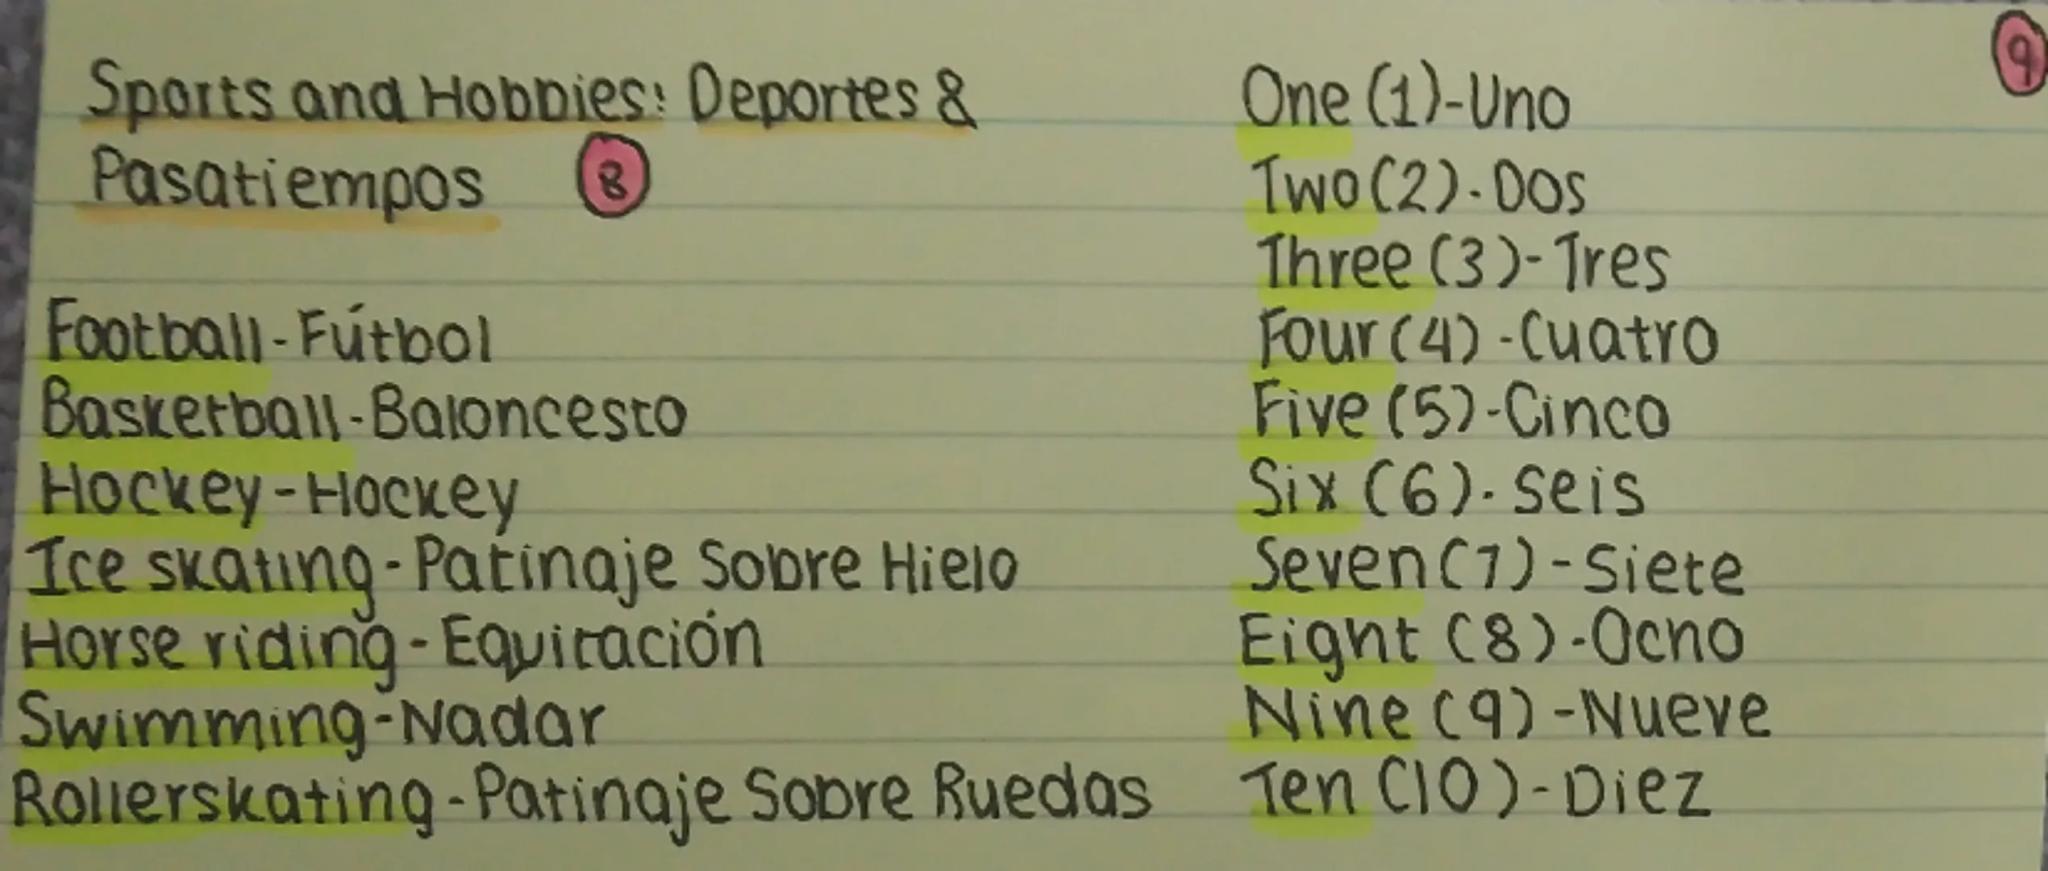 Sports and Hobbies: Deportes &
Pasatiempos 8
Football-Fútbol
Basketball-Baloncesto
Hockey-Hockey
Ice skating-Patinaje Sobre Hielo
Horse riding-Equitación
Swimming-Nadar
Rollerskating-Patinaje Sobre Ruedas
9
One (1)-Uno
Two (2)-Dos
Three (3)-Tres
Four (4)-Cuatro
Five (5)-Cinco
Six (6)-Seis
Seven (7)-Siete
Eight (8)-Ocho
Nine (9)-Nueve
Ten (10)-Diez